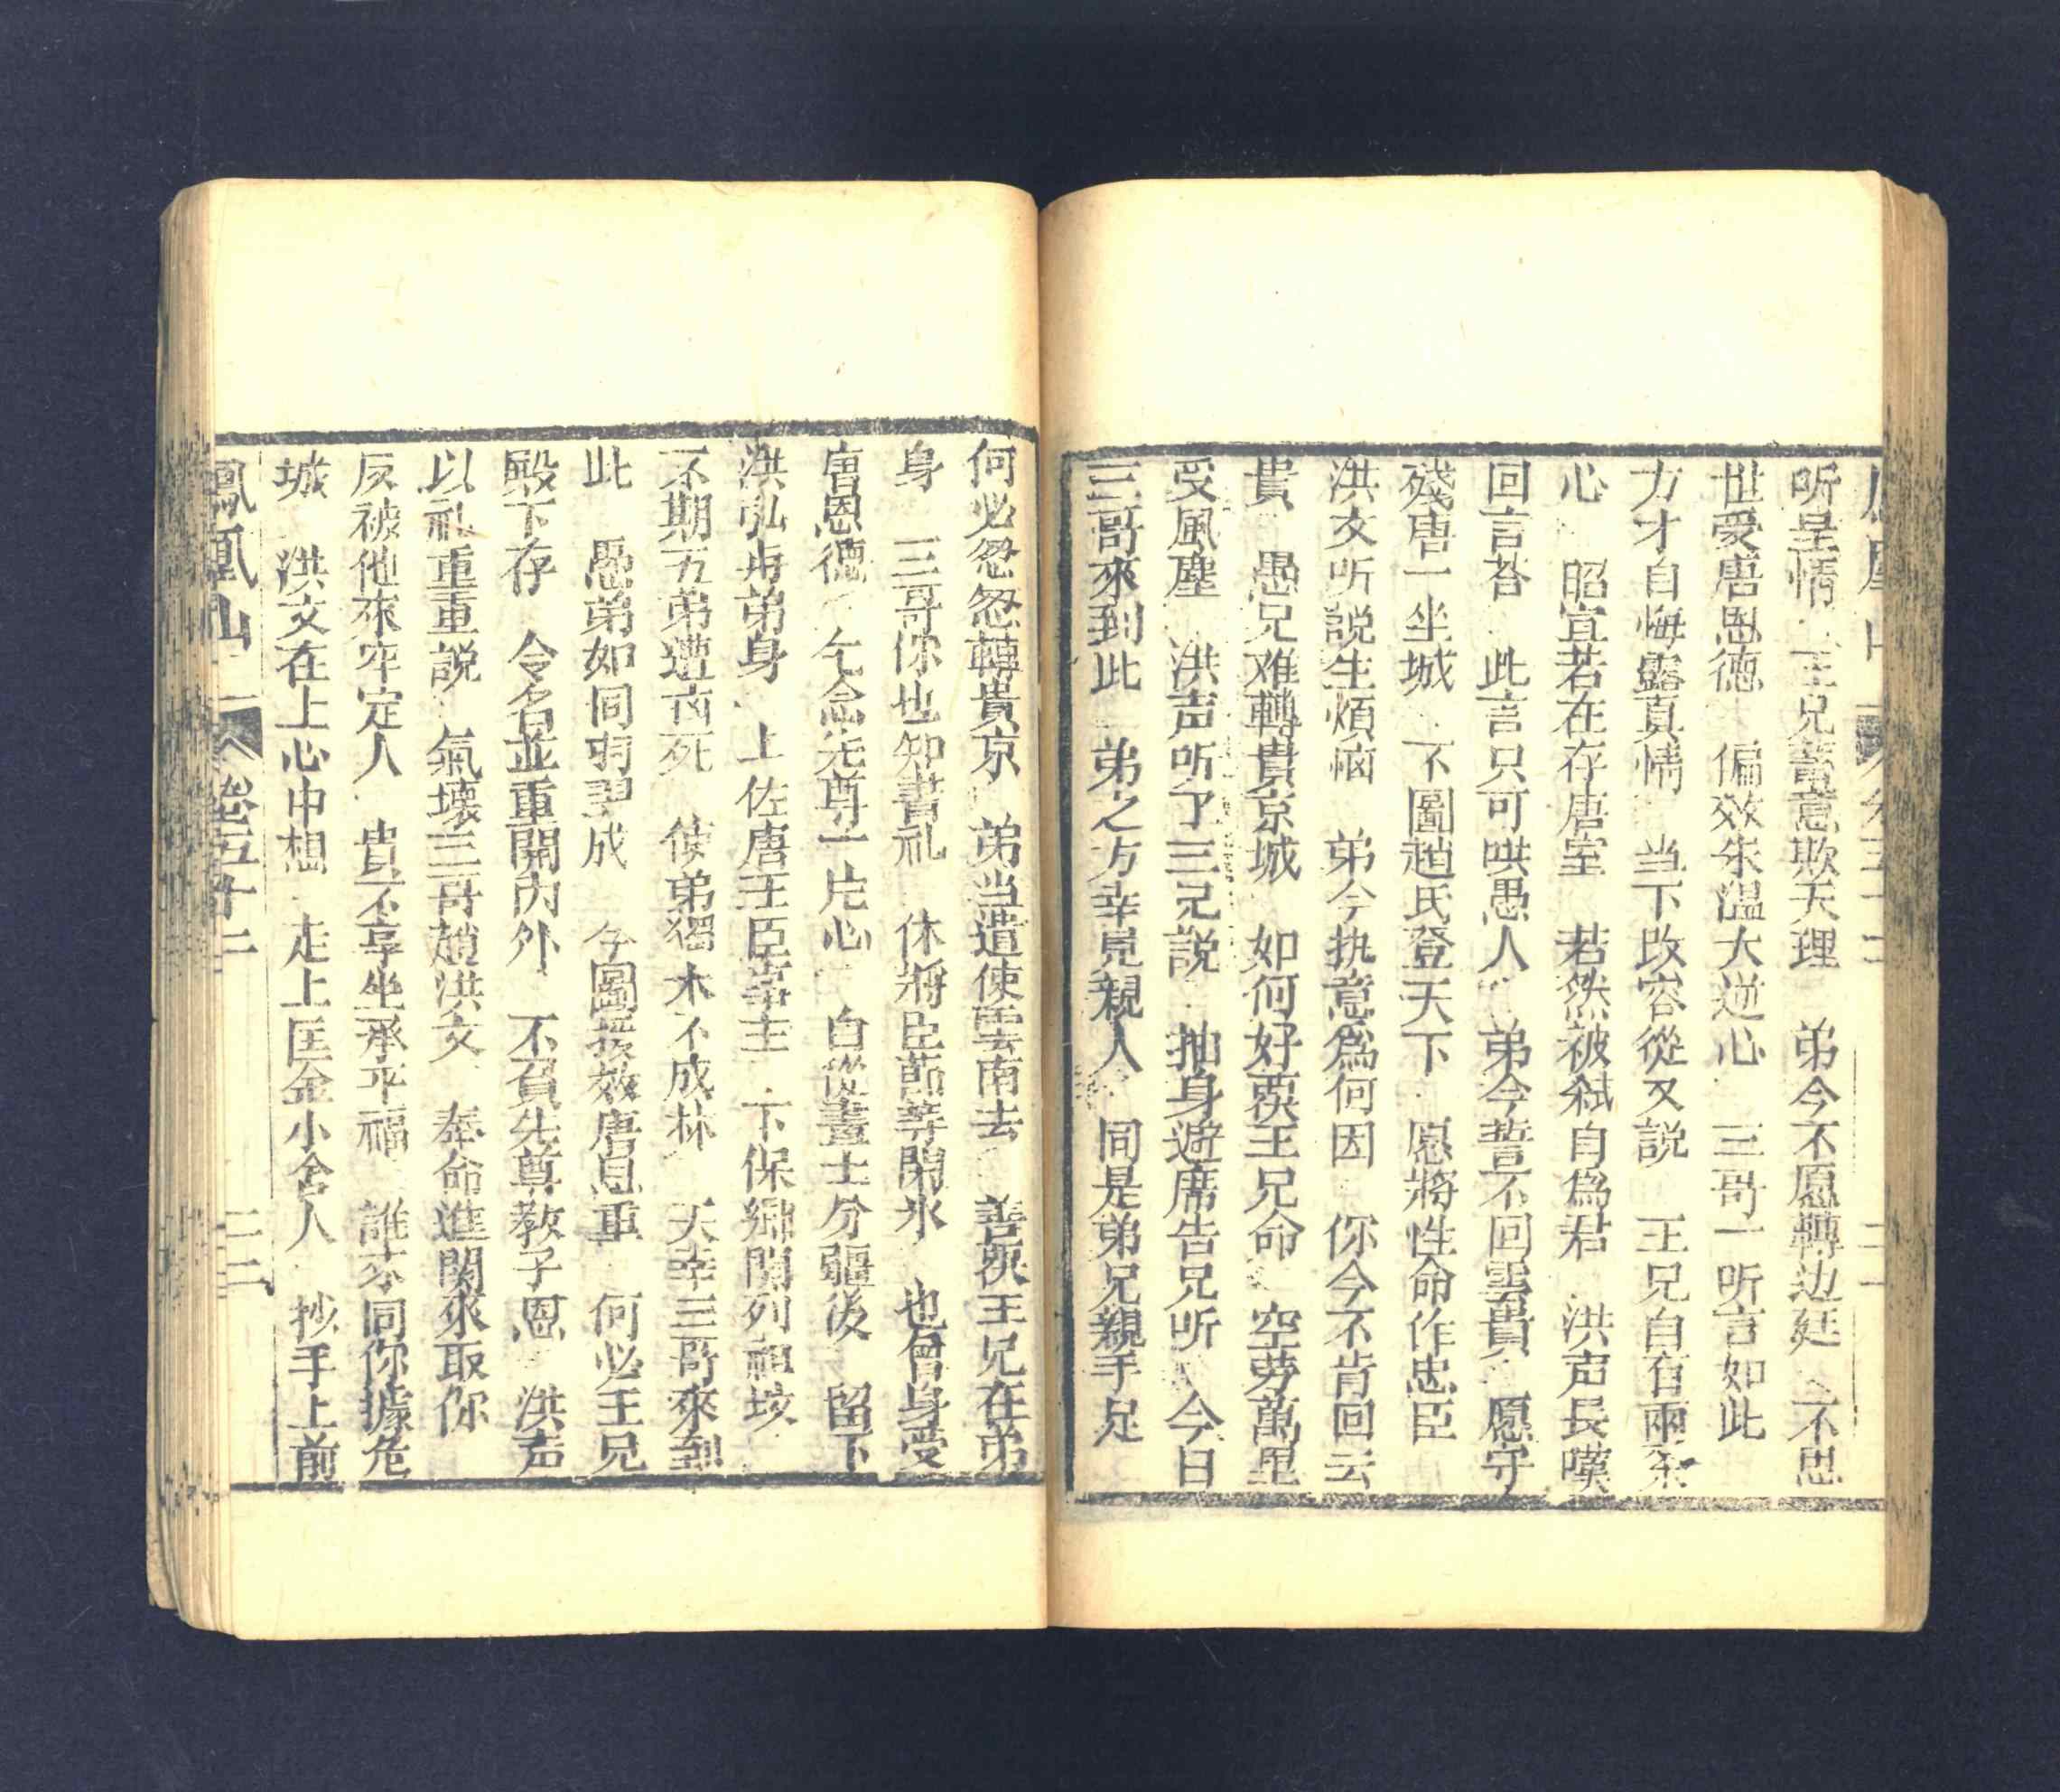 听呈情　王兄蓄意欺天理　弟今不愿轉边廷　不思
世受唐恩德　偏效朱温大逆心　三哥一听言如此
方才自悔露真情　当下改容從又説　王兄自有兩条
心　昭宣若在存唐室　若然被弑自爲君　洪声長嘆
回言荅　此言只可哄愚人　弟今誓不回雲貴　愿守
殘唐一坐城　不圖趙氏登天下　愿將性命作忠臣
洪文听説生煩惱　弟今执意爲何因　你今不肯回云
貴　愚兄难轉貴京城　如何好覆王兄命　空劳萬里
受風塵　洪声听了三兄説　抽身避席告兄听　今日
三哥來到此　弟之万幸見親人　同是弟兄親手足
何必忽忽轉貴京　弟当遣使雲南去　善覆王兄在弟
身　三哥你也知書礼　休將臣節等閑氷　也曾身受
唐恩德　乞念先尊一片心　自從晝土分疆後　留下
洪弘与弟身　上佐唐王臣幸主　下保鄉関列祖坟
不期五弟遭 死　使弟獨木不成林　天幸三哥來到
此　愚弟如同羽翌成　今圖 效唐恩重　何必王兄
殿下存　令名並重開内外　不負先尊教子恩　洪声
以礼重重説　氣壞三哥趙洪文　奉命進関來取你
反被他來牢定人　貴不享坐承平福　誰來同你據危
城　洪文在上心中想　走上匡金小舍人　抄手上前
鳳凰山　卷五十二　二二